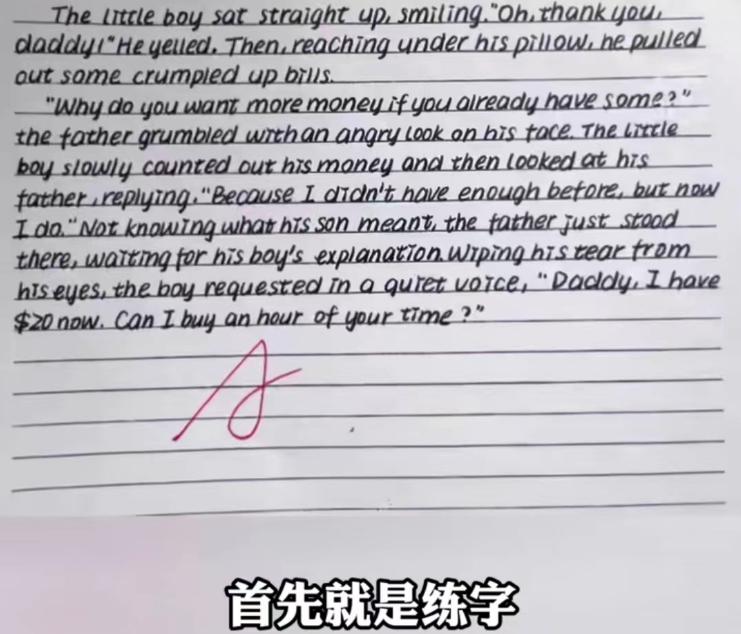 The little boy sat straight up, smiling."Oh, thank you,
daddy!"He yelled. Then, reaching under his pillow, he pulled
out some crumpled up bills.
"Why do you want more money if you already have some?"
the father grumbled with an angry look on his face. The little
boy slowly counted out his money and then looked at his
father, replying, "Because I didn't have enough before, but now
I do." Not knowing what his son meant, the father just stood
there, waiting for his boy's explanation. Wiping his tear from
his eyes, the boy requested in a quiet voice, "Daddy, I have
$20 now. Can I buy an hour of your time?"
首先就是练字